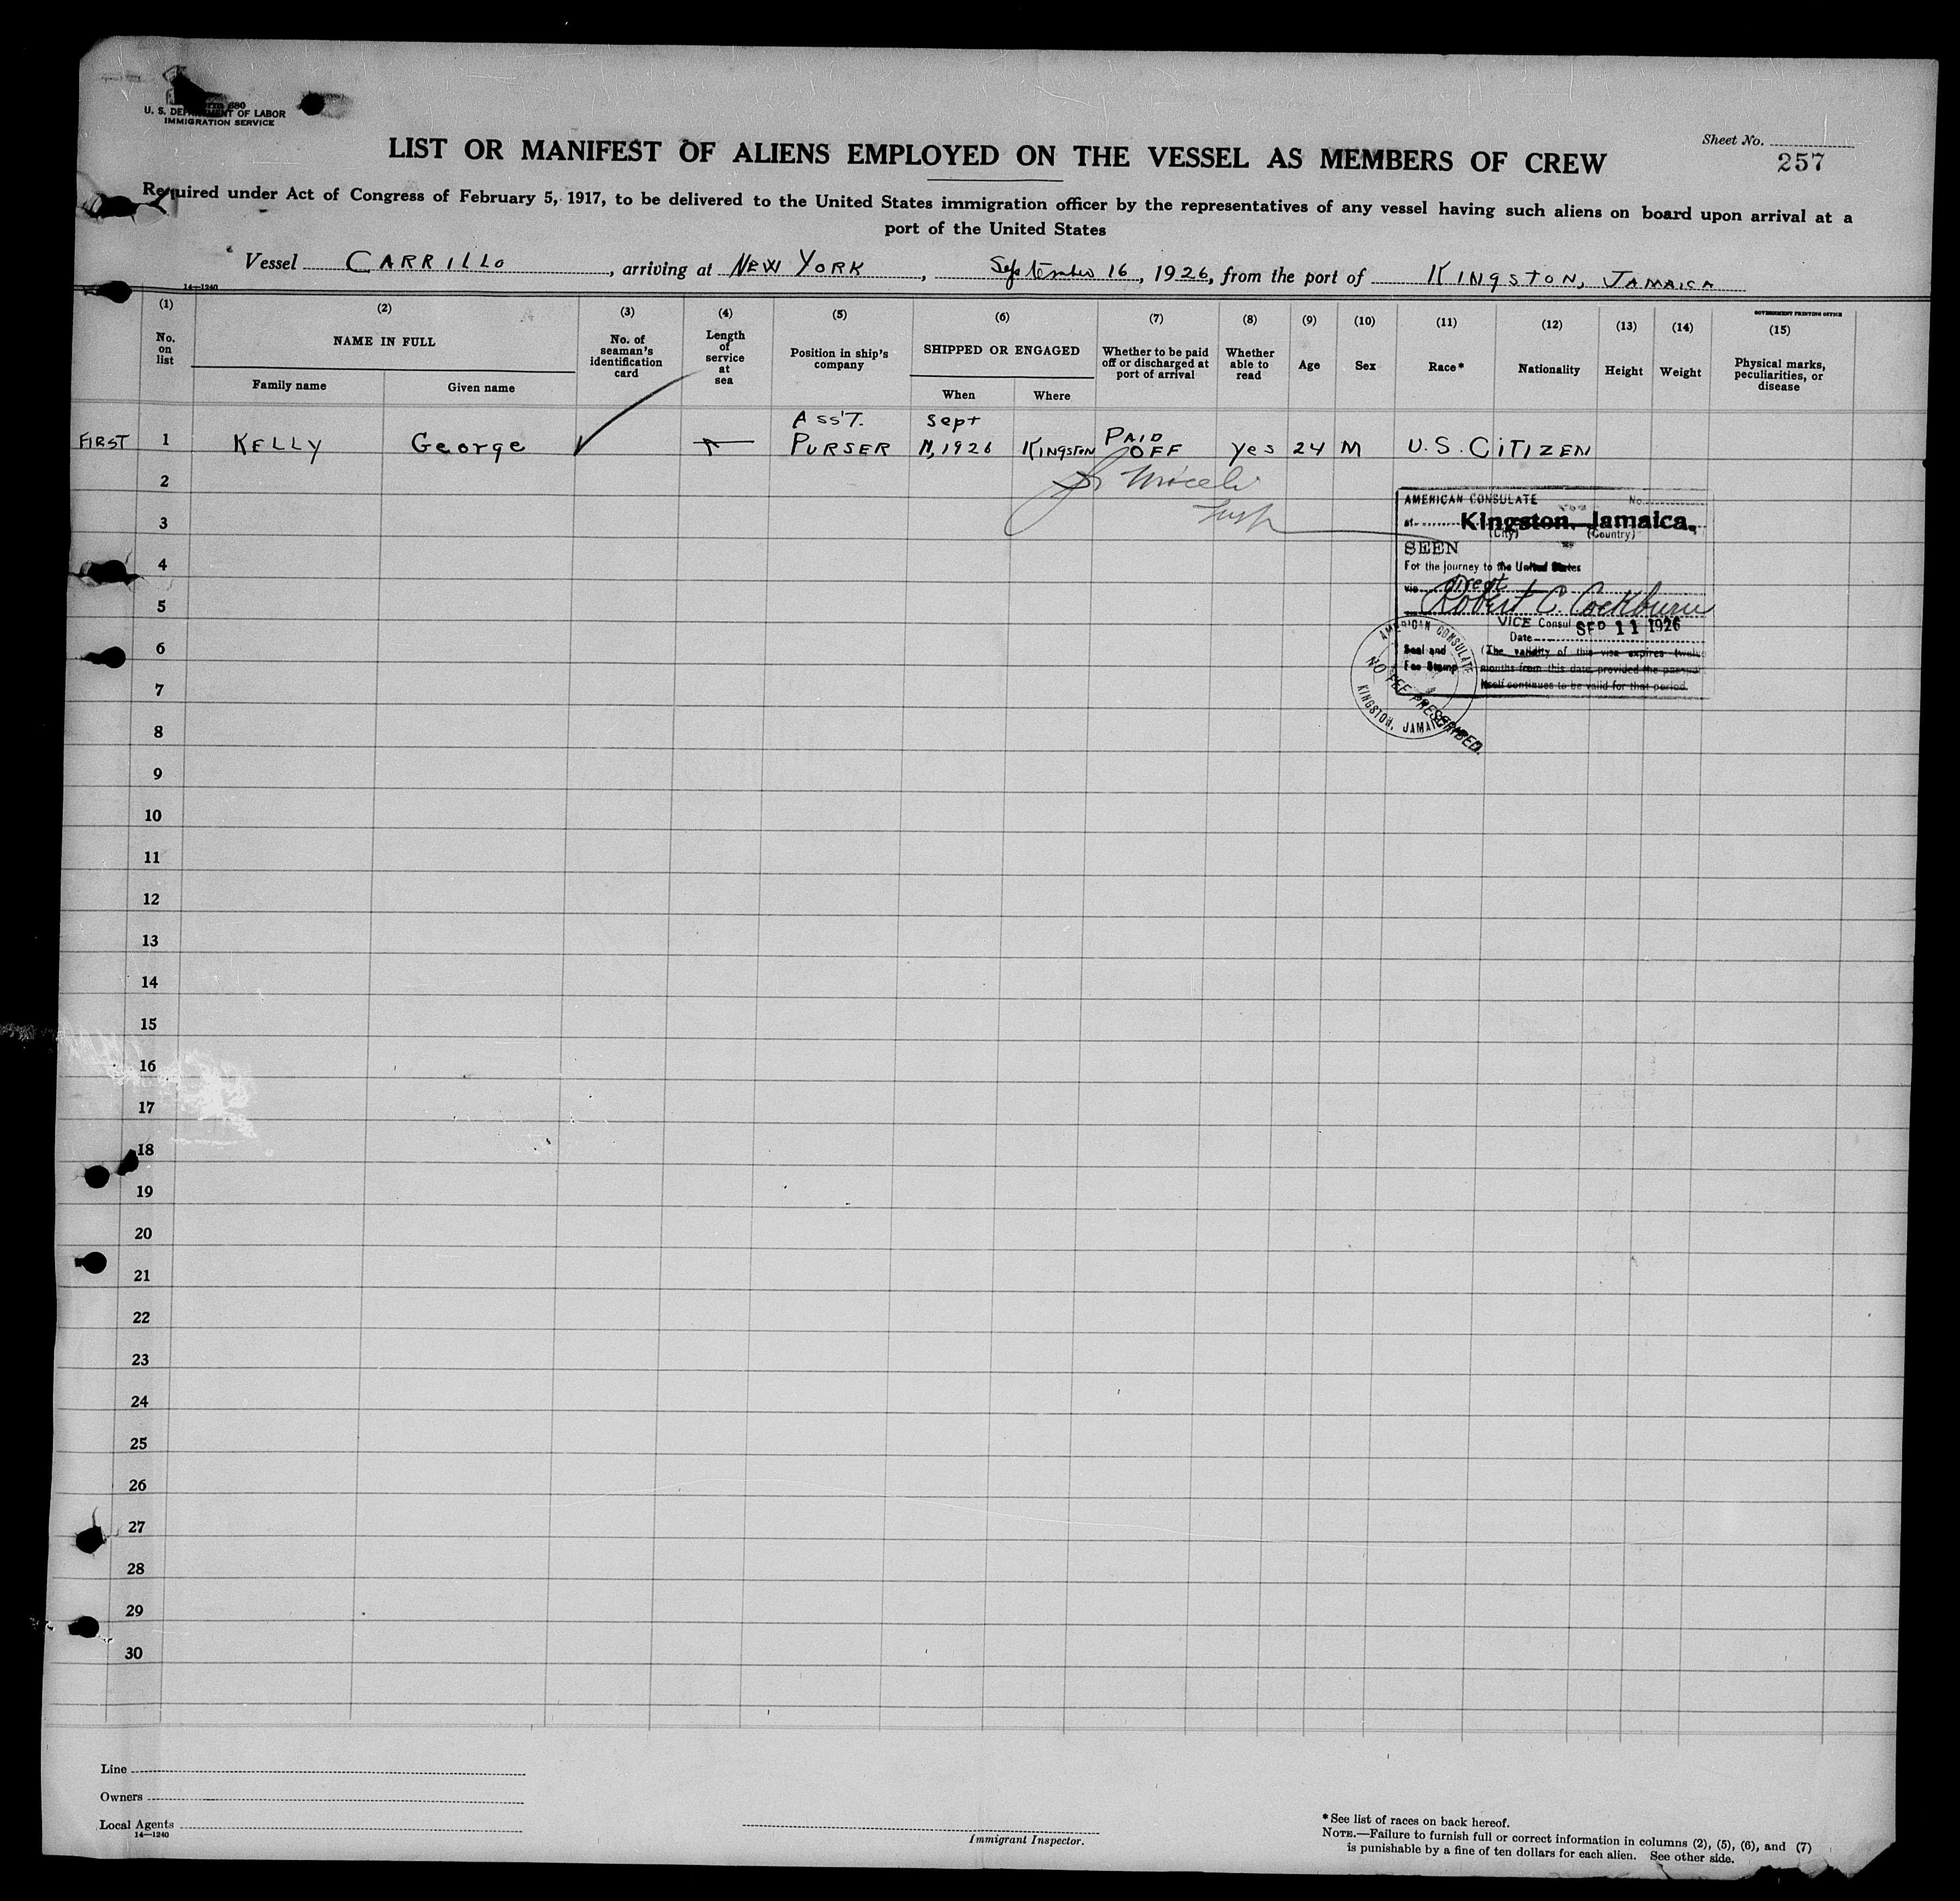 Form 680
U. S. DEPARTMENT OF LABOR
IMMIGRATION SERVICE
Sheet No.
257
LIST OR MANIFEST OF ALIENS EMPLOYED ON THE VESSEL AS MEMBERS OF CREW
Required under Act of Congress of February 5, 1917, to be delivered to the United States immigration officer by the representatives of any vessel having such aliens on board upon arrival at a
port of the United States
Vessel CARRILLO, arriving at NEW YORK, September 16, 1926, from the port of KINGSTON, JAMAICA
14—1240
GOVERNMENT PRINTING OFFICE
(1) (2) (3) (4) (5) (6) (7) (8) (9) (10) (11) (12) (13) (14) (15)
No. on list
NAME IN FULL
Family name
Given name
No. of seaman's identification card
Length of service at sea
Position in ship's company
SHIPPED OR ENGAGED
When
Where
Whether to be paid off or discharged at port of arrival
Whether able to read
Age
Sex
Race*
Nationality
Height
Weight
Physical marks, peculiarities, or disease
FIRST 1 KELLY George ASS'T. PURSER Sept 11, 1926 KINGSTON PAID OFF yes 24 M U.S. CITIZEN
2
3
4
5
6
7
8
9
10
11
12
13
14
15
16
17
18
19
20
21
22
23
24
25
26
27
28
29
30
AMERICAN CONSULATE No.
at Kingston, Jamaica.
(City) (Country)
SEEN
For the journey to the United States
via direct
Robert C. Cockburn
VICE Consul
Date SEP 11 1926
Seal and
Fee Stamp
(The validity of this visa expires twelve
months from this date provided the passport
itself continues to be valid for that period
AMERICAN CONSULATE
KINGSTON, JAMAICA
NO FEE PRESCRIBED.
Line
Owners
Local Agents
14—1240
Immigrant Inspector.
*See list of races on back hereof.
NOTE.—Failure to furnish full or correct information in columns (2), (5), (6), and (7)
is punishable by a fine of ten dollars for each alien. See other side.